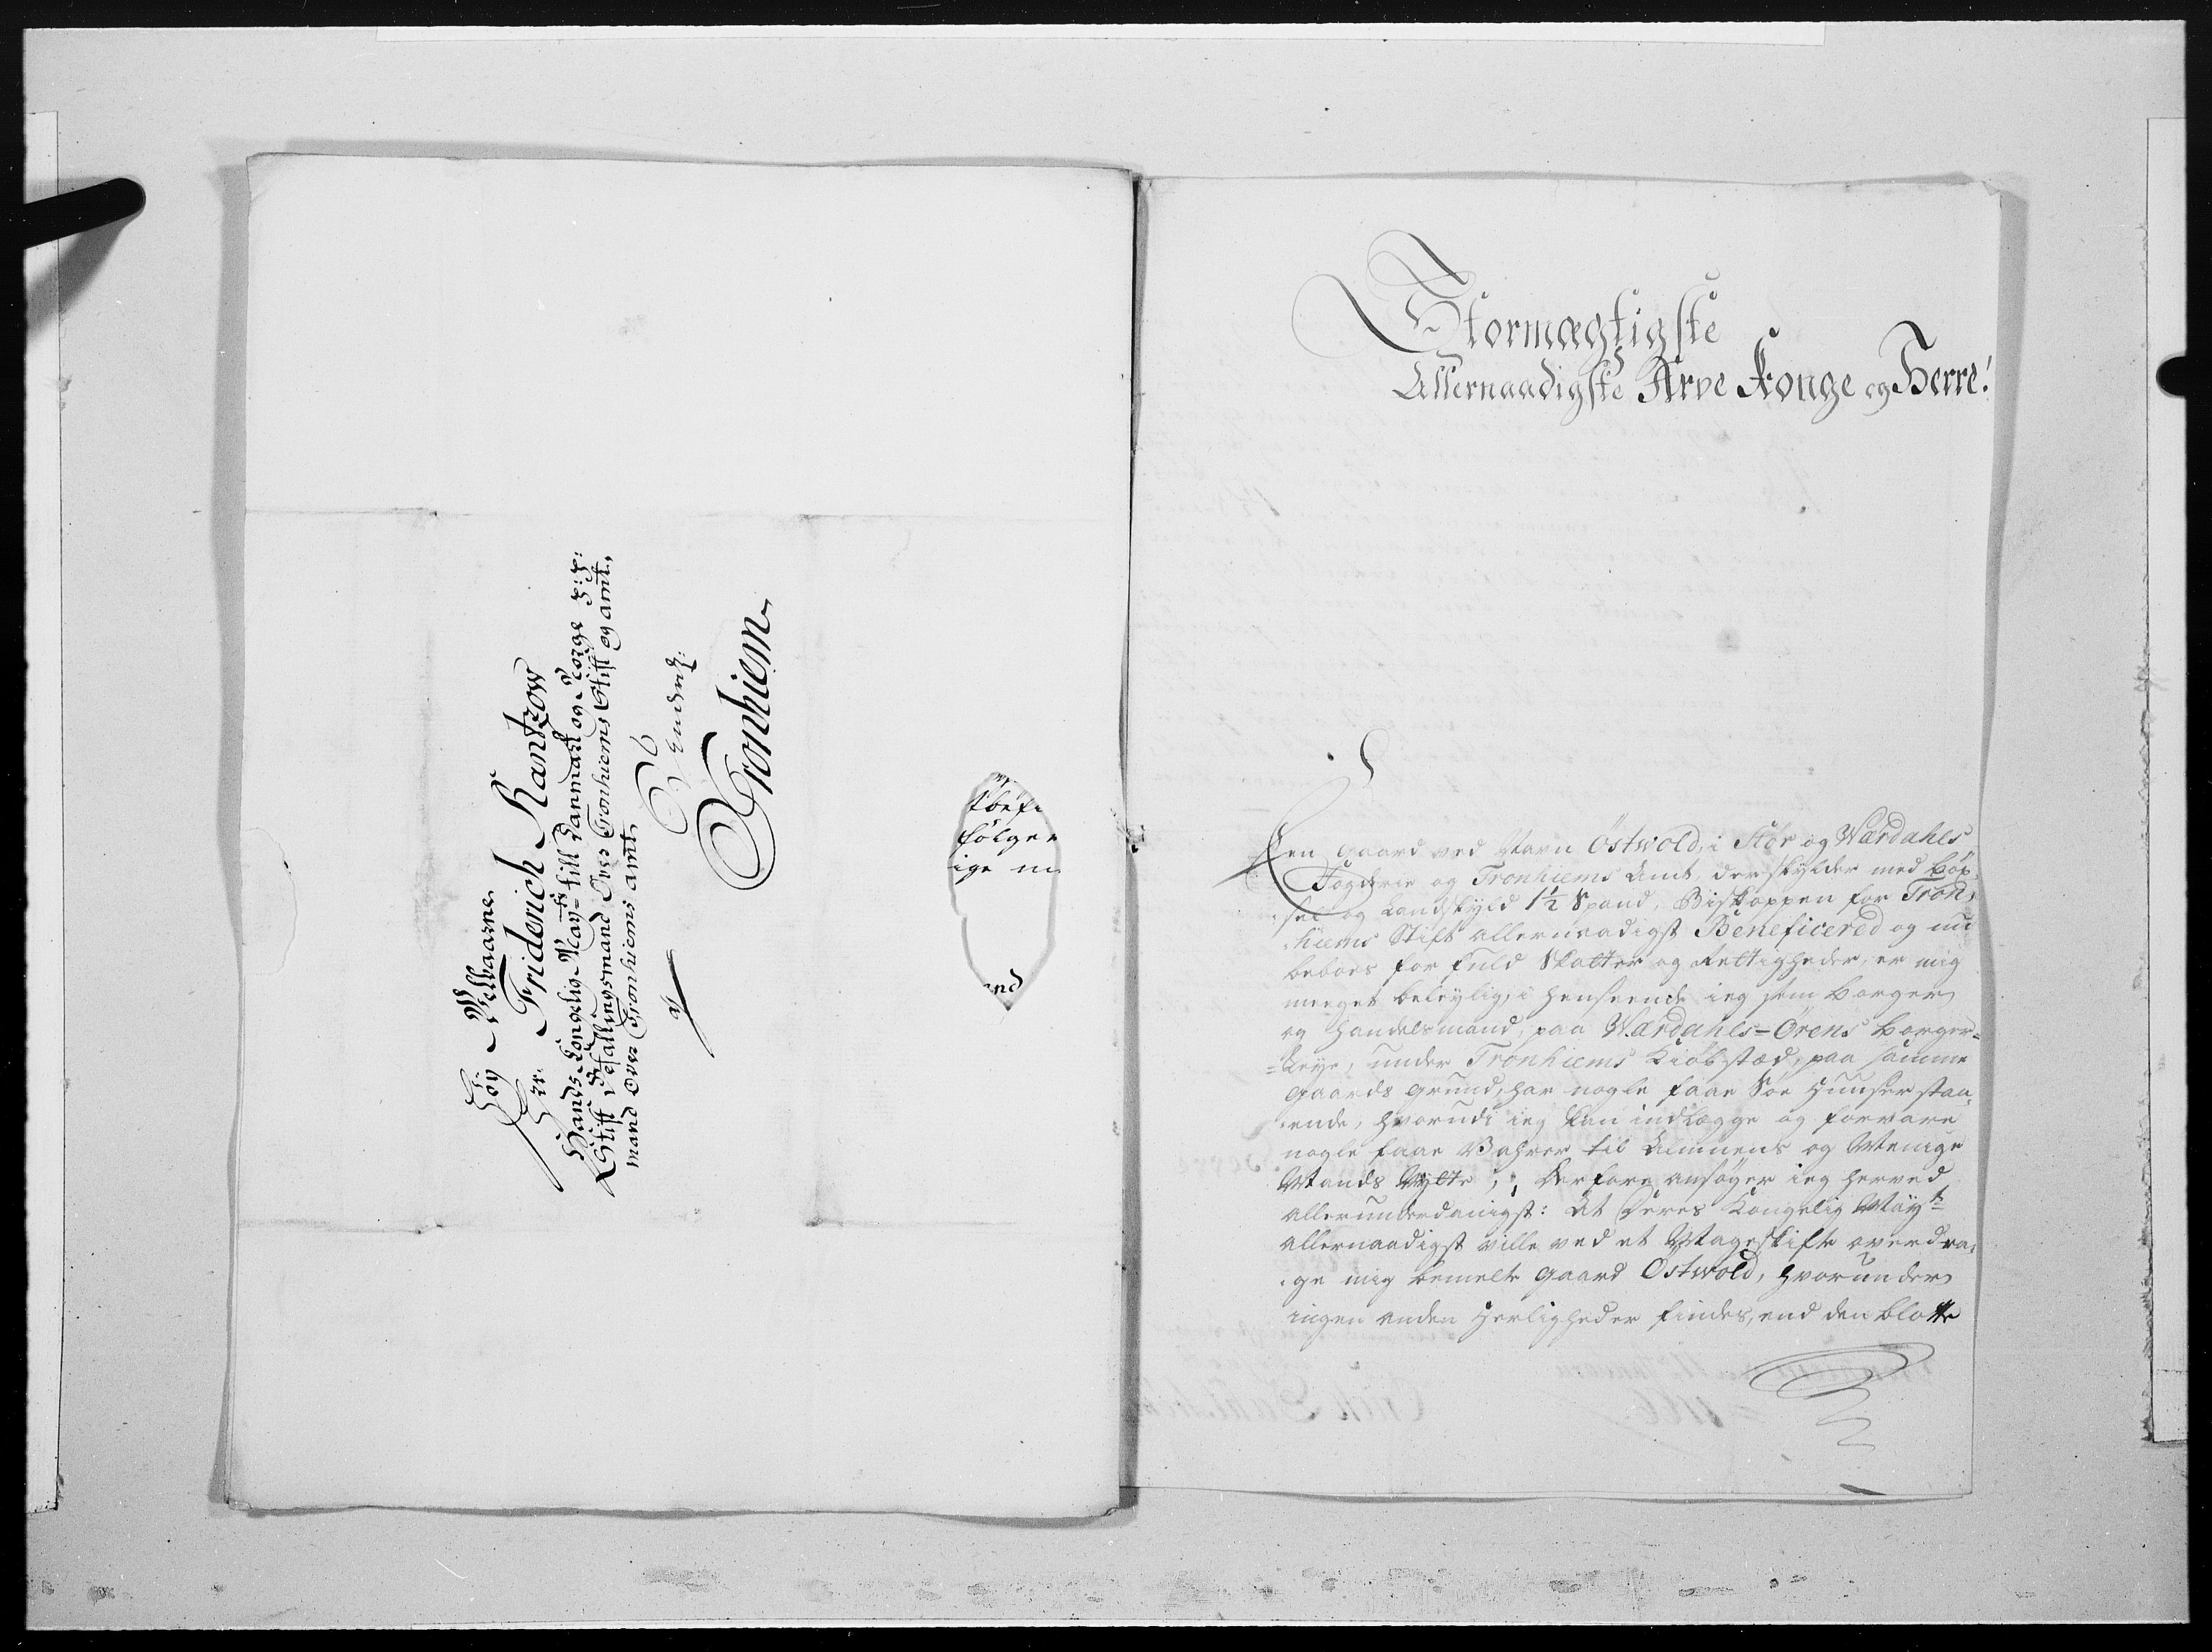 Høy Velbaarne
Hr. Friderich Rantzow
Hands Kongelig May-ts till Danmark og Norge p:p:
Stift Befallingsmand Over Tronhiems Stift og amt,
mand Over Tronhiems amt
Tronhiem
følger
ige
and
Stormægtigste
Allernaadigste Arve Konge og Herre!
Een gaard ved Navn Östwold, i Stör og Wærdahls
Fogderie og Tronhiems Amt, der skylder med böx-
sel og Landskyld 1½ Spand, Biskoppen for Tron-
hiems Stift allernaadigst Beneficered og nu
beboes for fuld Skatter og Rettigheder, er mig
meeget beleylig, i henseende ieg som borger
og Handelsmand, paa Wærdahls-Örens borger-
leye, under Tronhiems Kiöbstæd, paa samme
gaards grund, har nogle faae Söe Huuser staa-
ende, hvorudi ieg kan indlægge og forvare
nogle faae Vahrer til Almuens og Menige
Mands Nytte; Derfore ansøger ieg herved
allerunderdanigst: At Deres Kongelig Mayts
allernaadigst ville ved et Mageskifte overdra-
ge mig bemelte gaard Östwold, hvorunder
ingen anden Herligheder findes, end den blotte